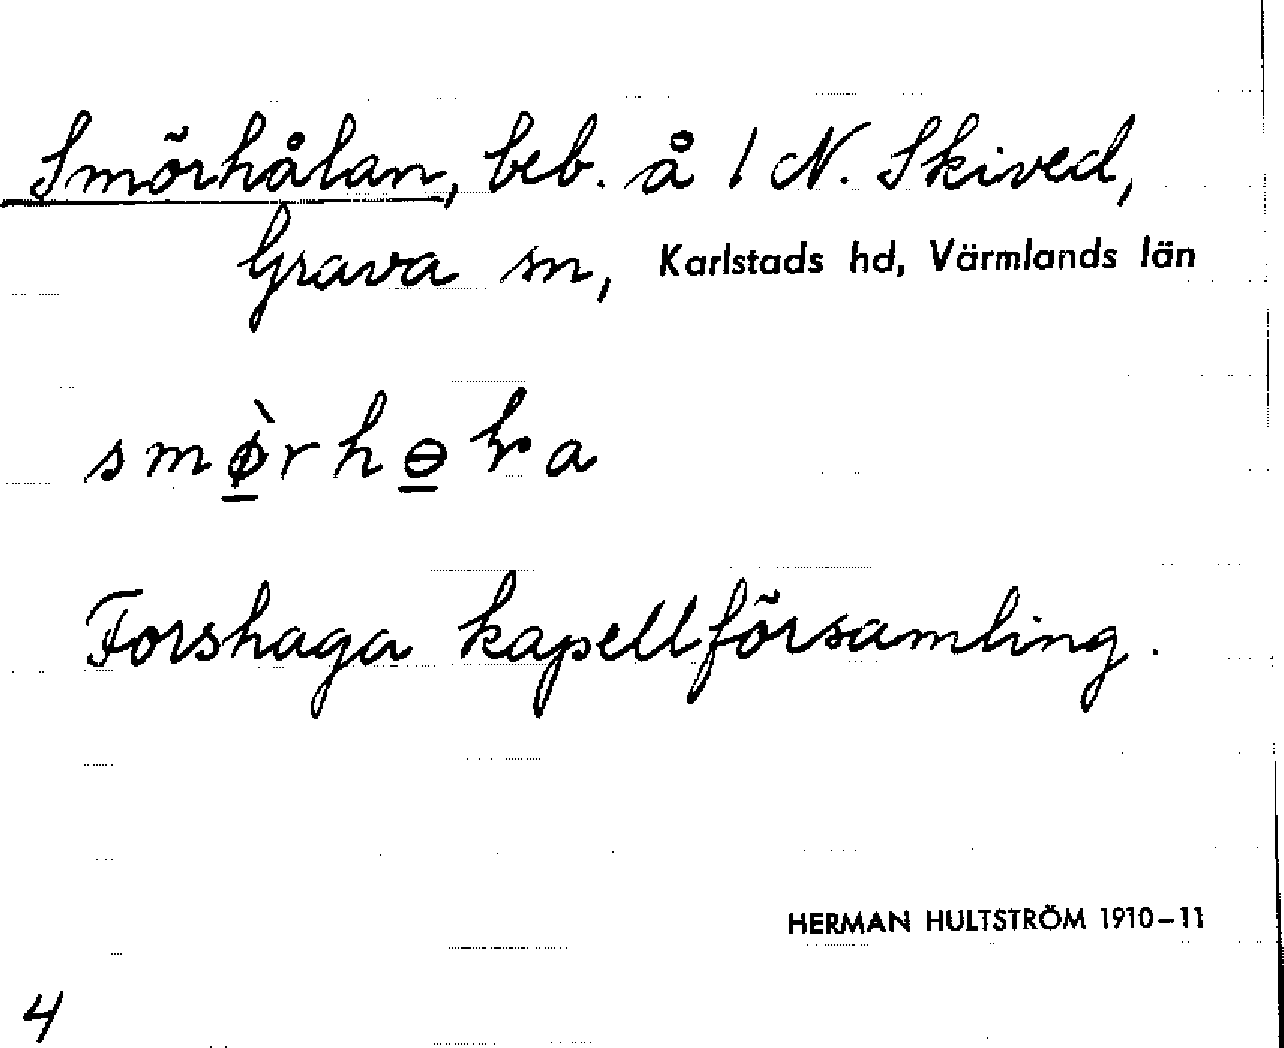 Smörhålan, beb. å 1 N. Skived,
Grava sn, Karlstads hd, Värmlands län
Forshaga kapellförsamling.
HERMAN HULTSTRÖM 1910–11
4